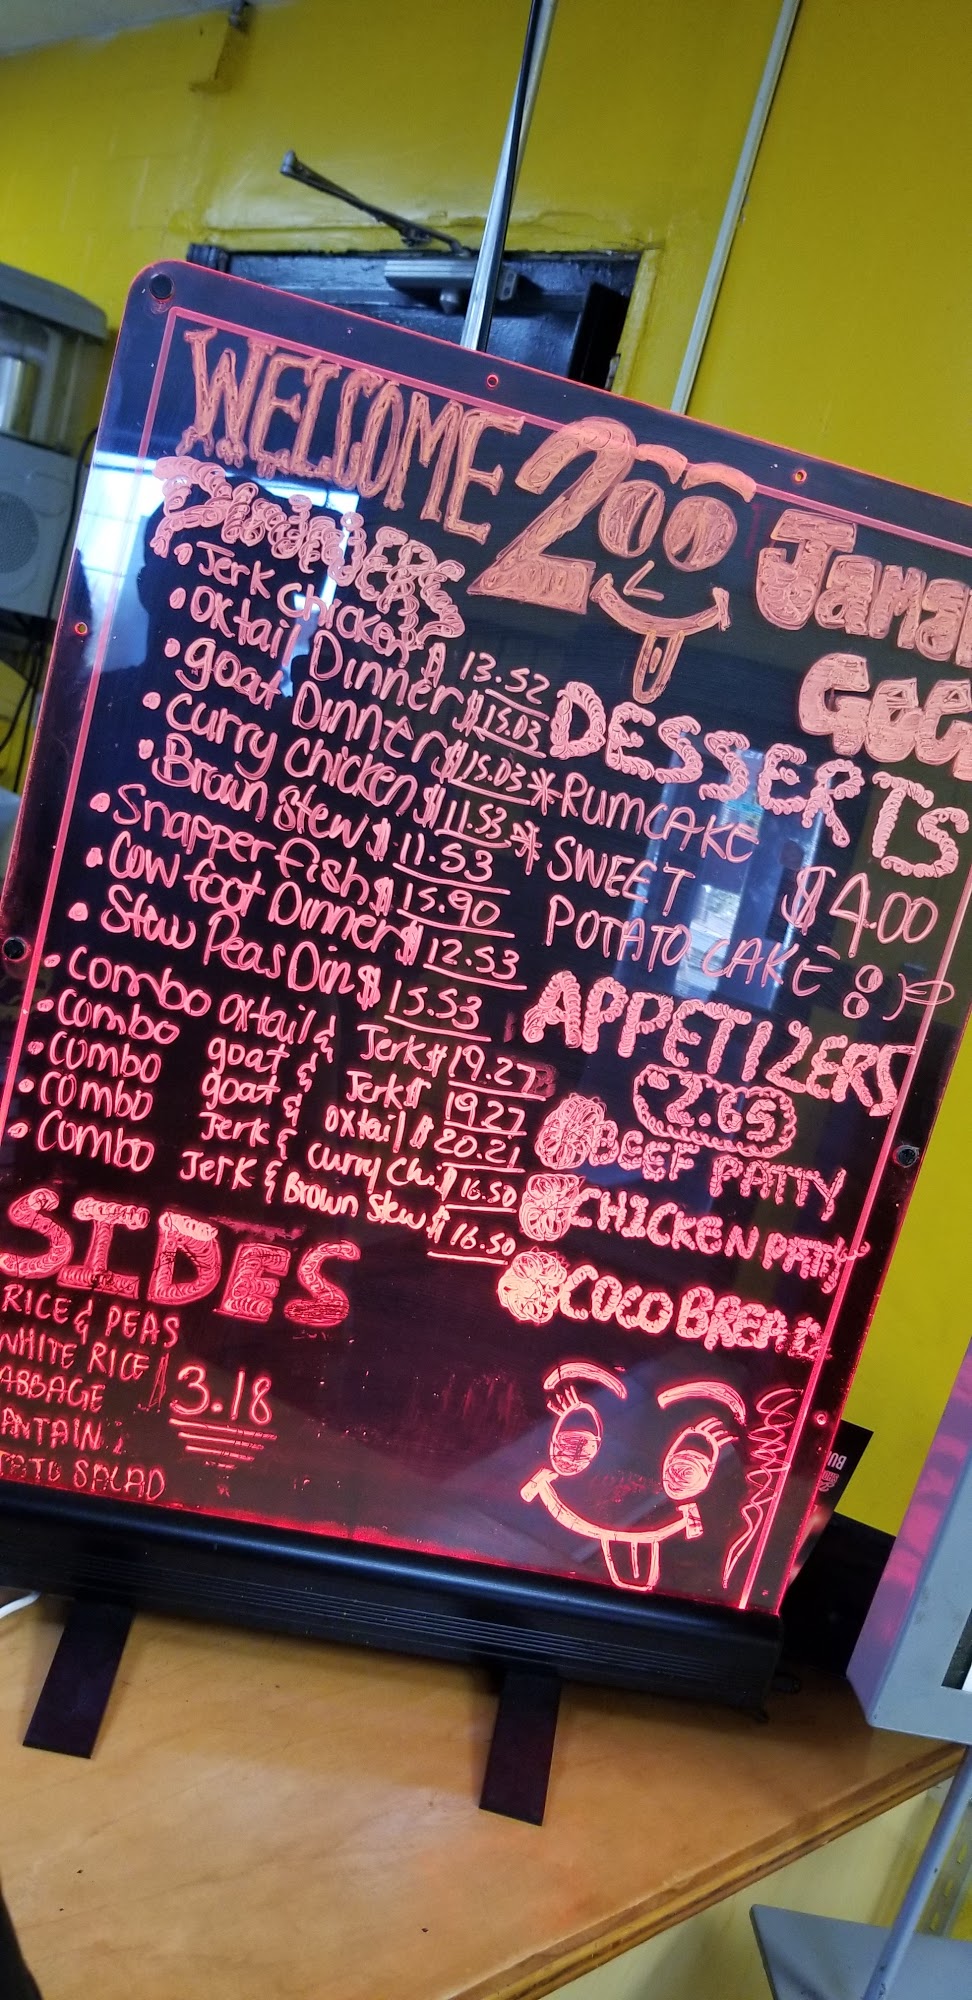 WELCOME 2OO
Dinners
• Jerk chicken $ 13.52
• Oxtail Dinner $ 15.03
• goat Dinner $ 15.03
• curry chicken $ 11.53
• Brown Stew $ 11.53
• Snapper fish $ 15.90
• Cow foot Dinner $ 12.53
• Stew Peas Din $ 15.53
• Combo oxtail & Jerk $ 19.27
• Combo goat & Jerk $ 19.27
• Combo goat & oxtail $ 20.21
• Combo Jerk & curry Chi. $ 16.50
• Combo Jerk & Brown Stew $ 16.50
SIDES
RICE & PEAS
WHITE RICE $ 3.18
ABBAGE
ANTAIN
TATO SALAD
DESSERTS
* RUMCAKE
* SWEET $4.00
POTATO CAKE 8)
APPETIZERS
2.65
BEEF PATTY
CHICKEN PATTY
COCO BREAD